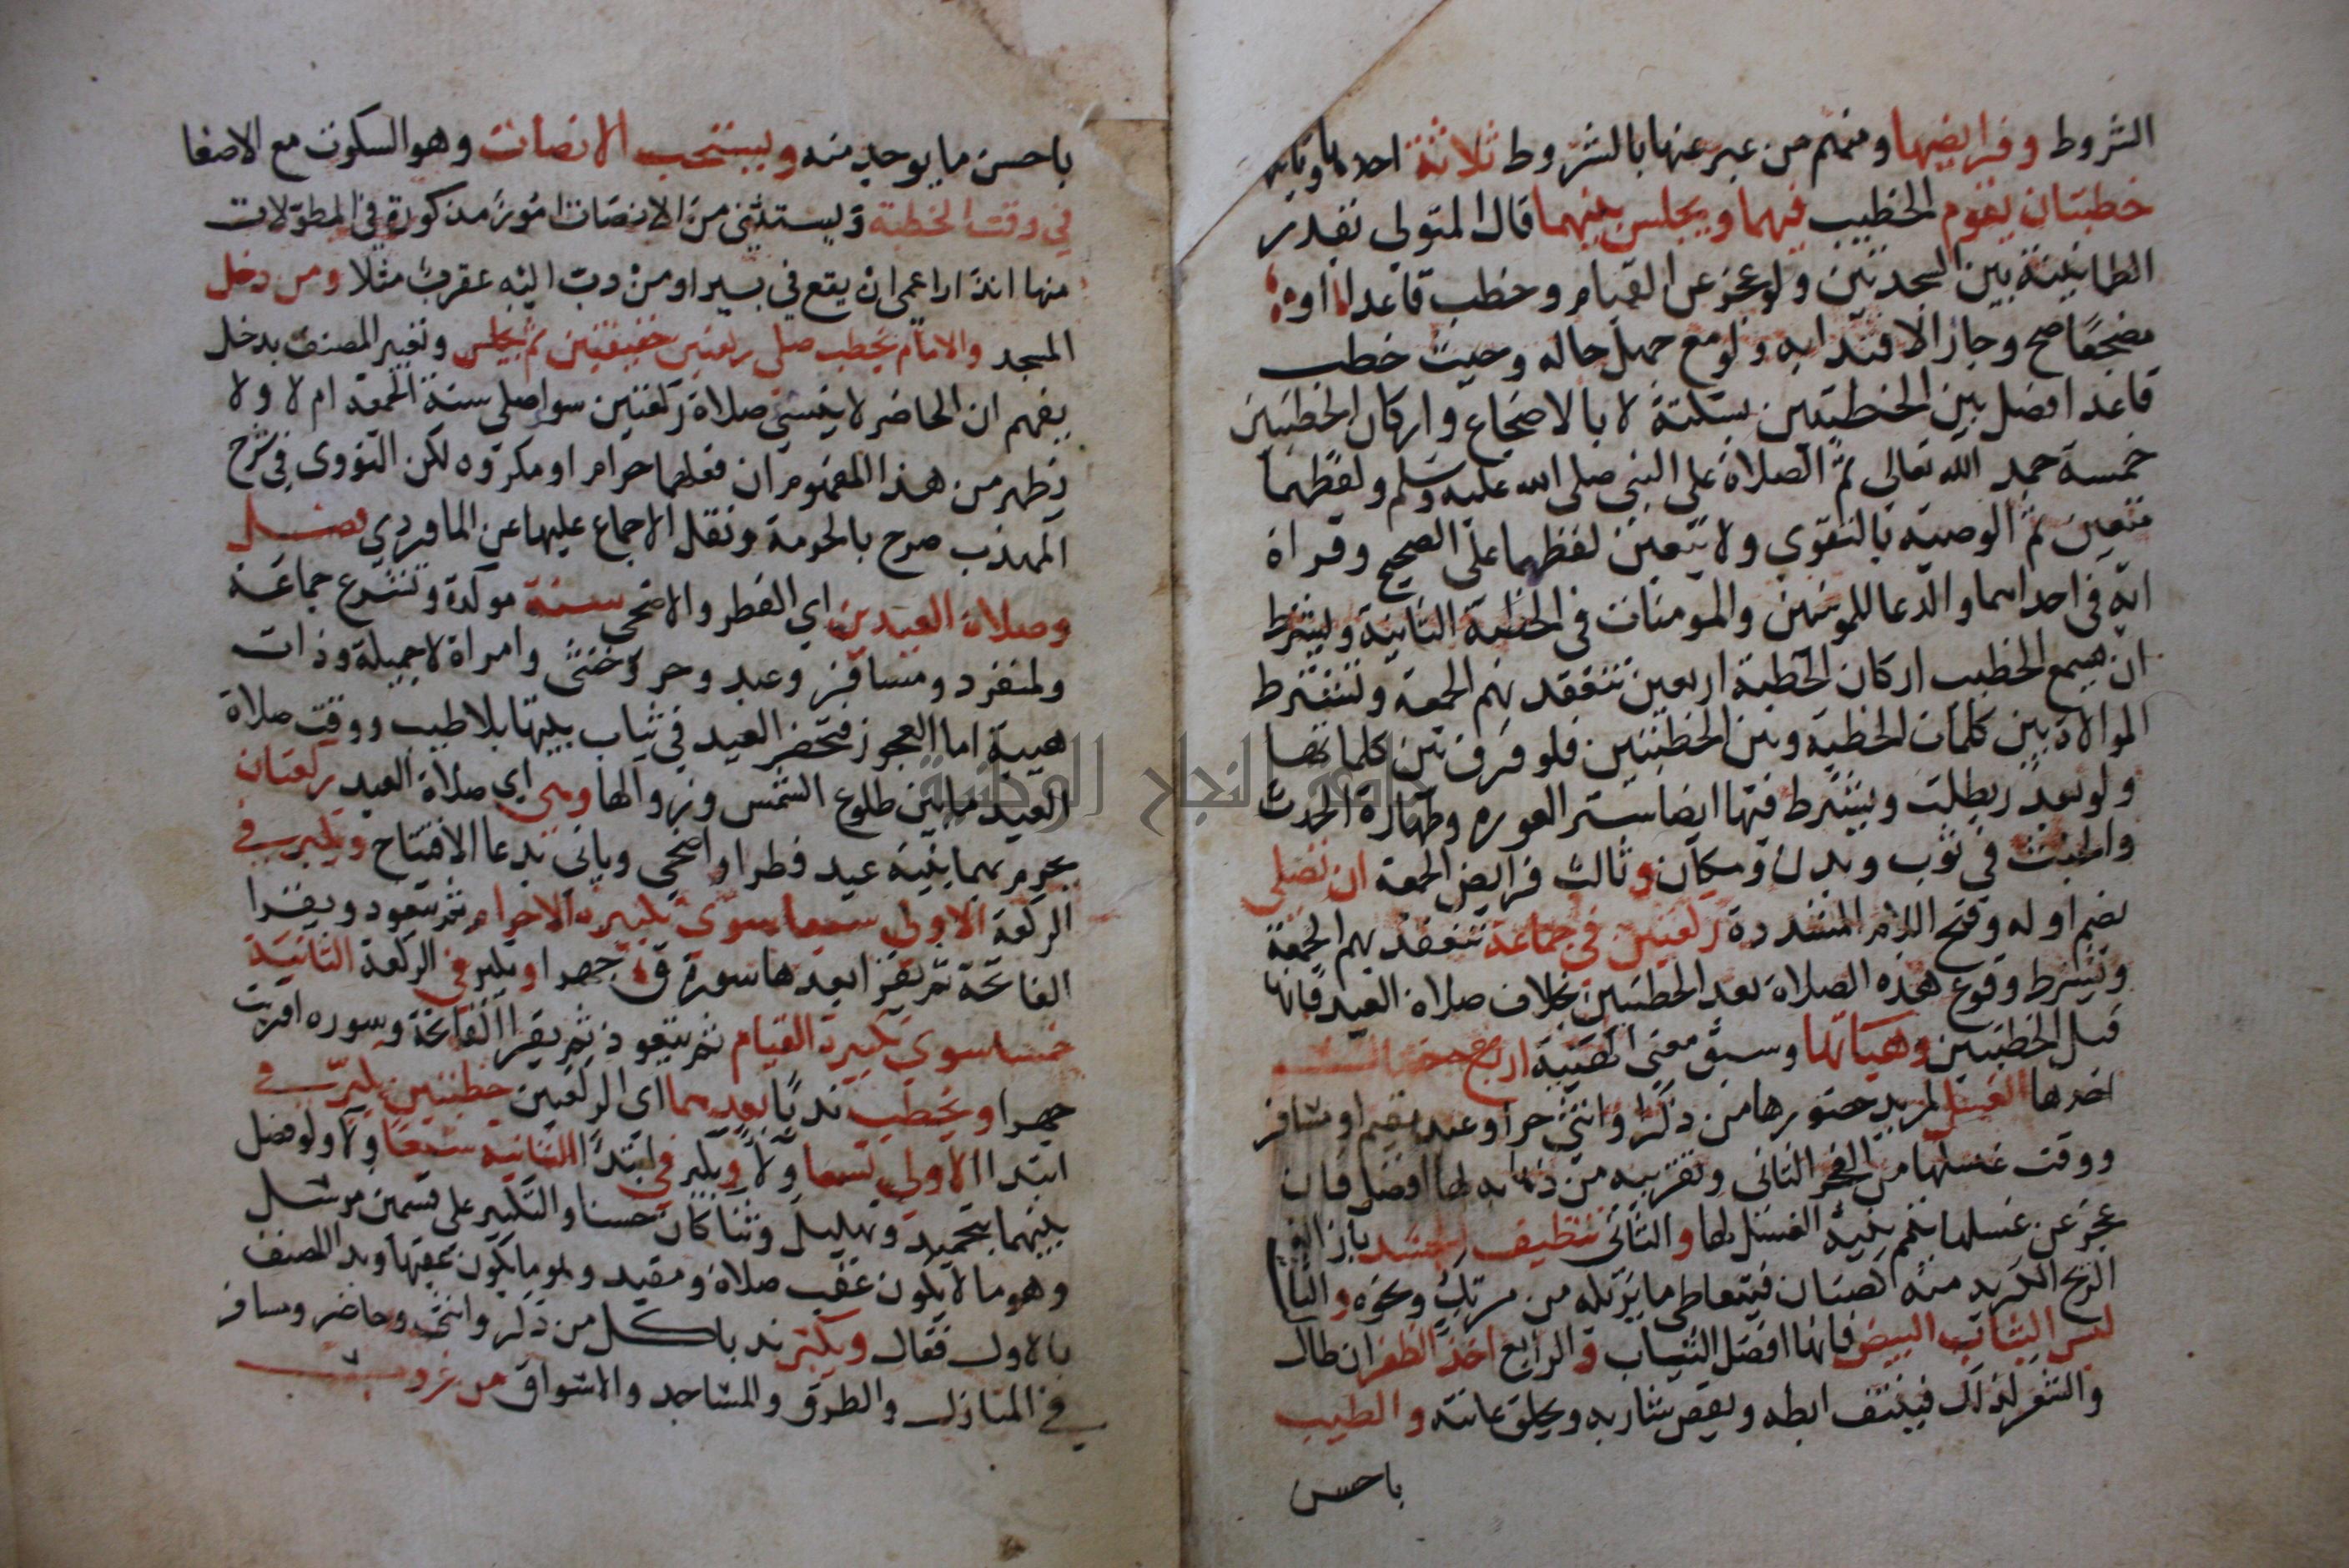 الشروط وفرايضها ومنهم من عبر عنها بالشروط ثلاثة احدها وثانيها
خطبتان يقوم الخطيب فيهما ويجلس بينهما قال المتولي بقدر
الطمانينة بين السجدتين ولو عجز عن القيام وخطب قاعدا او
مضجعا صح وجاز الاقتدا به ولو مع جهل حاله وحيث خطب
قاعدا فصل بين الخطبتين بسكتة لا بالاضجاع واركان الخطبتين
خمسة حمد الله تعالى ثم الصلاة على النبي صلى الله عليه وسلم ولفظهما
متعين ثم الوصية بالتقوى ولا يتعين لفظهما على الصحيح وقراة
اية في احداهما والدعا للمومنين والمومنات في الخطبة الثانية ويشترط
ان يسمع الخطيب اركان الخطبة اربعين تنعقد بهم الجمعة وتشترط
الموالاة بين كلمات الخطبة وبين الخطبتين فلو فرق بين كلماتها
ولو بعذر بطلت ويشترط فيها ايضا ستر العورة وطهارة الحدث
والخبث في ثوب وبدن ومكان وثالث فرايض الجمعة ان تصلى
بضم اوله وفتح اللام المشددة ركعتين في جماعة تنعقد بهم الجمعة
ويشترط وقوع هذه الصلاة بعد الخطبتين بخلاف صلاة العيد فانها
قبل الخطبتين وهياتها وسبق معنى الهيئة اربع خصال
احدها الغسل لمريد حضورها من ذكر وانثى حر او عبد مقيم او مسافر
ووقت غسلها من الفجر الثاني وتقريبه من ذهابه لها افضل فان
عجز عن غسلها تيمم بنية الغسل لها والثاني تنظيف الجسد بازالة
الريح الكريه منه كصنان فيتعاطى ما يزيله من مرتك ونحوه والثالث
لبس الثياب البيض فانها افضل الثياب والرابع اخذ الظفر ان طال
والشعر لذلك فينتف ابطه ويقص شاربه ويحلق عانته والطيب
باحسن
باحسن ما يوجد منه ويستحب الانصات وهو السكوت مع الاصغا
في وقت الخطبة ويستثنى من الانصات امور مذكورة في المطولات
منها انذار اعمى ان يقع في بير او من دب اليه عقرب مثلا ومن دخل
المسجد والامام يخطب صلى ركعتين خفيفتين ثم يجلس وتعبير المصنف بدخل
يفهم ان الحاضر لا ينشي صلاة ركعتين سوا صلى سنة الجمعة ام لا ولا
يظهر من هذا المفهوم ان فعلهما حرام او مكروه لكن النووي في شرح
المهذب صرح بالحرمة ونقل الاجماع عليها عن الماوردي فصل
وصلاة العيدين اي الفطر والاضحى سنة موكدة وتشرع جماعة
ولمنفرد ومسافر وعبد وحر وخنثى وامراة لا جميلة وذات
هيبة اما العجوز فتحضر العيد في ثياب بيتها بلا طيب ووقت صلاة
العيد ما بين طلوع الشمس وزوالها وهي اي صلاة العيد ركعتان
يحرم بهما بنية عيد فطر او اضحى وياتي بدعا الافتتاح ويكبر في
الركعة الاولى سبعا سوى تكبيرة الاحرام ثم يتعوذ ويقرا
الفاتحة ثم يقرا بعدها سورة ق جهرا ويكبر في الركعة الثانية
خمسا سوى تكبيرة القيام ثم يتعوذ ثم يقرا الفاتحة وسورة اقتربت
جهرا ويخطب ندبا بعدهما اي الركعتين خطبتين يكبر في
ابتدا الاولى تسعا ولا ويكبر في ابتدا الثانية سبعا ولا ولو فصل
بينهما بتحميد وتهليل وثنا كان حسنا والتكبير على قسمين مرسل
وهو ما لا يكون عقب صلاة ومقيد وهو ما يكون عقبها وبدا المصنف
بالاول فقال ويكبر ندبا كل من ذكر وانثى وحاضر ومسافر
في المنازل والطرق والمساجد والاسواق من غروب
جامعة النجاح الوطنية